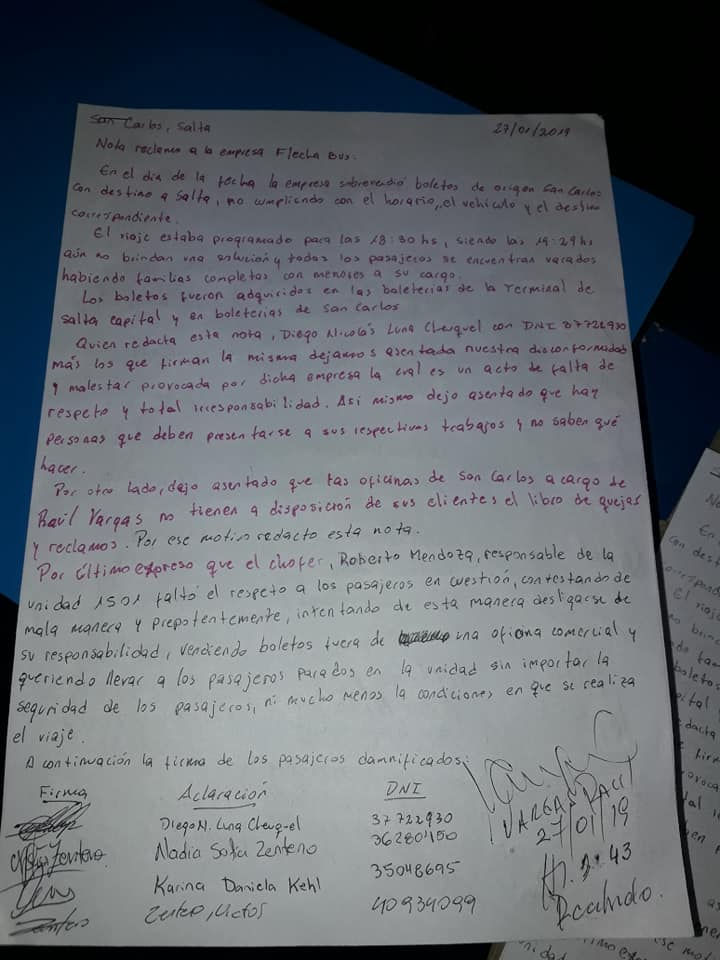 San Carlos, Salta 27/01/2019
Nota reclamo a la empresa Flecha Bus.
En el día de la fecha la empresa sobrevendió boletos de origen San Carlos
con destino a Salta, no cumpliendo con el horario, el vehículo y el destino
correspondiente.
El viaje estaba programado para las 18:30 hs, siendo las 19:29 hs
aún no brindan una solución y todos los pasajeros se encuentran varados
habiendo familias completas con menores a su cargo.
Los boletos fueron adquiridos en las boleterias de la Terminal de
Salta capital y en boleterias de San Carlos
Quien redacta esta nota, Diego Nicolás Luna Cheuquel con DNI 37722930
más los que firman la misma dejamos asentada nuestra disconformidad
y malestar provocada por dicha empresa la cual es un acto de falta de
respeto y total irresponsabilidad. Asi mismo dejo asentado que hay
personas que deben presentarse a sus respectivos trabajos y no saben qué
hacer.
Por otro lado, dejo asentado que las oficinas de San Carlos a cargo de
Raúl Vargas no tienen a disposición de sus clientes el libro de quejas
y reclamos. Por ese motivo redacto esta nota.
Por último expreso que el chofer, Roberto Mendoza, responsable de la
unidad 1501 faltó el respeto a los pasajeros en cuestión, contestando de
mala manera y prepotentemente, intentando de esta manera desligarse de
su responsabilidad, vendiendo boletos fuera de una oficina comercial y
queriendo llevar a los pasajeros parados en la unidad sin importar la
seguridad de los pasajeros, ni mucho menos la condiciones en que se realiza
el viaje.
A continuación la firma de los pasajeros damnificados:
Firma Aclaración DNI
Diego N. Luna Cheuquel 37722930
Zenteno Nadia Sofia Zenteno 36280150
Karina Daniela Kehl 35048695
40934099
VARGAS RAUL
27/01/19